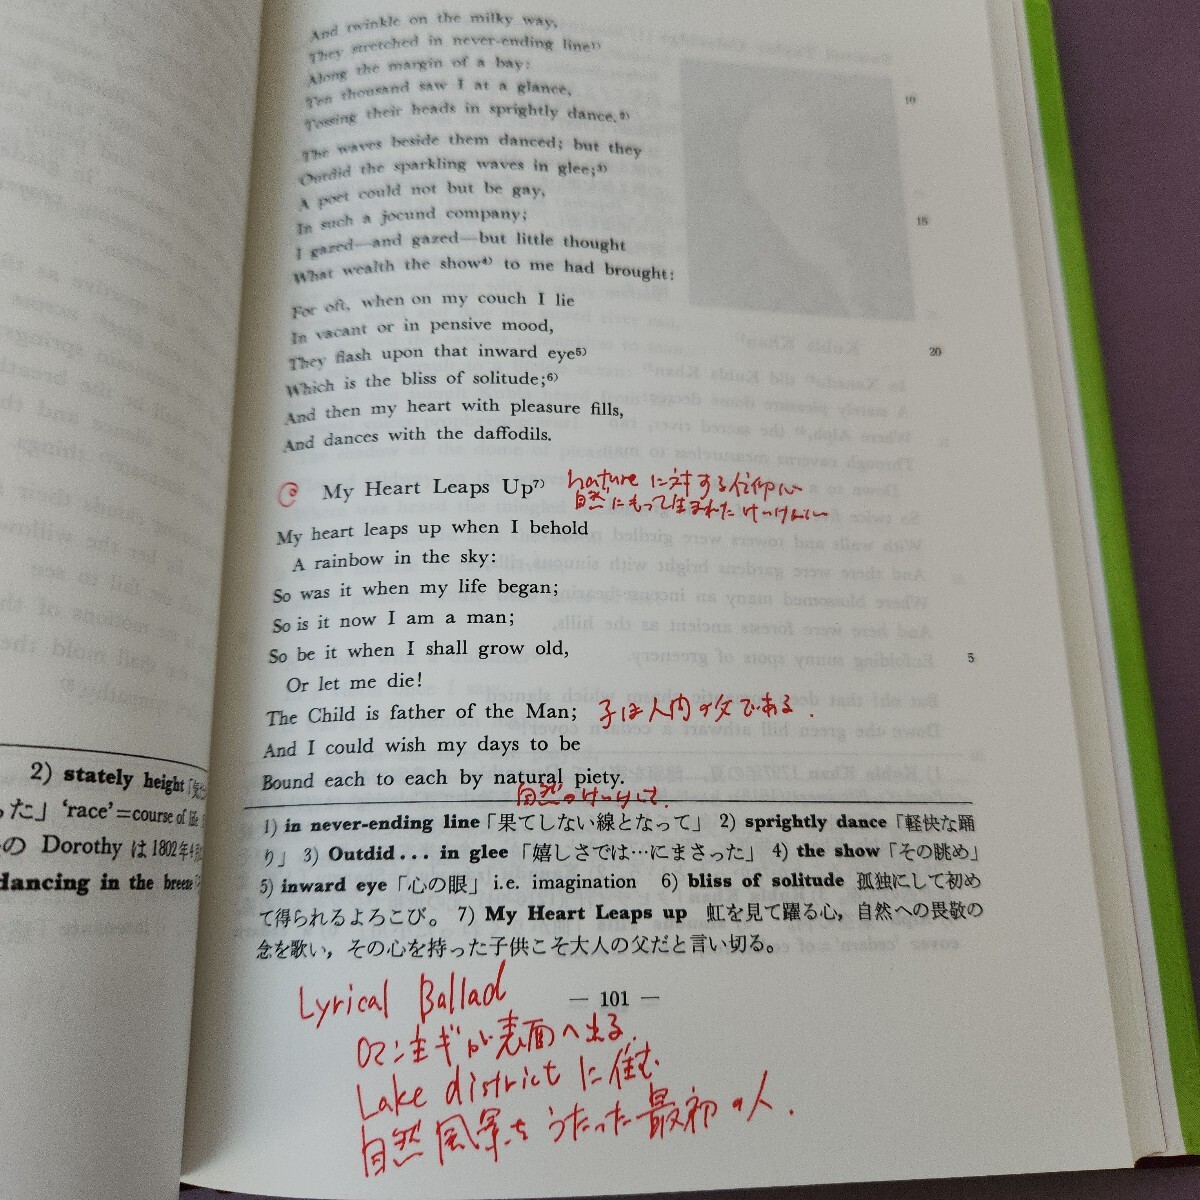 And twinkle on the milky way,
They stretched in never-ending line¹⁾
Along the margin of a bay:
Ten thousand saw I at a glance,
Tossing their heads in sprightly dance.²⁾
10
The waves beside them danced; but they
Outdid the sparkling waves in glee;³⁾
A poet could not but be gay,
In such a jocund company;
15
I gazed—and gazed—but little thought
What wealth the show⁴⁾ to me had brought:
For oft, when on my couch I lie
In vacant or in pensive mood,
20
They flash upon that inward eye⁵⁾
Which is the bliss of solitude;⁶⁾
And then my heart with pleasure fills,
And dances with the daffodils.
My Heart Leaps Up⁷⁾
natureに対する信仰心
自然にもって生まれたけいけんしん
My heart leaps up when I behold
A rainbow in the sky:
So was it when my life began;
So is it now I am a man;
So be it when I shall grow old,
5
Or let me die!
The Child is father of the Man; 子は人間の父である.
And I could wish my days to be
Bound each to each by natural piety.
自然の
1) in never-ending line「果てしない線となって」 2) sprightly dance「軽快な踊
り」 3) Outdid... in glee「嬉しさでは…にまさった」 4) the show「その眺め」
5) inward eye「心の眼」 i.e. imagination 6) bliss of solitude 孤独にして初め
て得られるよろこび。 7) My Heart Leaps up 虹を見て躍る心，自然への畏敬の
念を歌い，その心を持った子供こそ大人の父だと言い切る。
— 101 —
Lyrical Ballad
ロマン主ギが表面へ出る.
Lake districtに住む.
自然風景をうたった最初の人.
2) stately height
った」 ‘race’=course of life
の Dorothy は1802年4月
dancing in the breeze